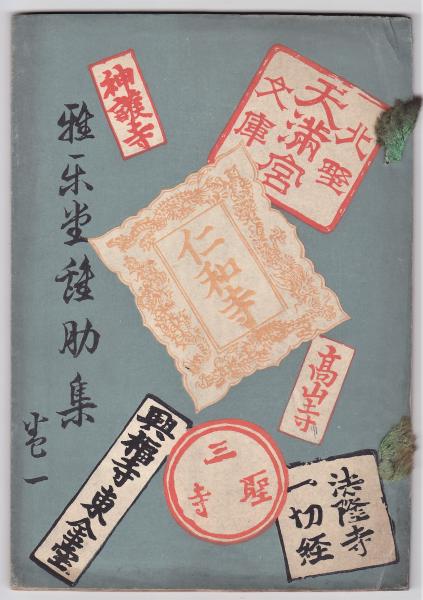 雅乐堂雞肋集
卷一
神護寺
北埜
天満宮
文庫
仁和寺
高山寺
三聖寺
興福寺 東金堂
法隆寺
一切経